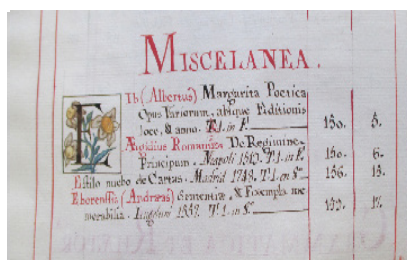 MISCELANEA.
Eƴb (Albertus) Margarita Poetica
Opus Variorum, absque Editionis
loco, & anno. T.1. in F. 130. 5.
Ægidius Romanus De Regimine
Principum. Napoli T.1. in F. 130. 6.
Estilo nuebo de Cartas. Madrid T.1. in 8º 136. 13.
Eborensis (Andreas) Sententiæ, & Exempla me
morabilia. T.1. in 8º 17.